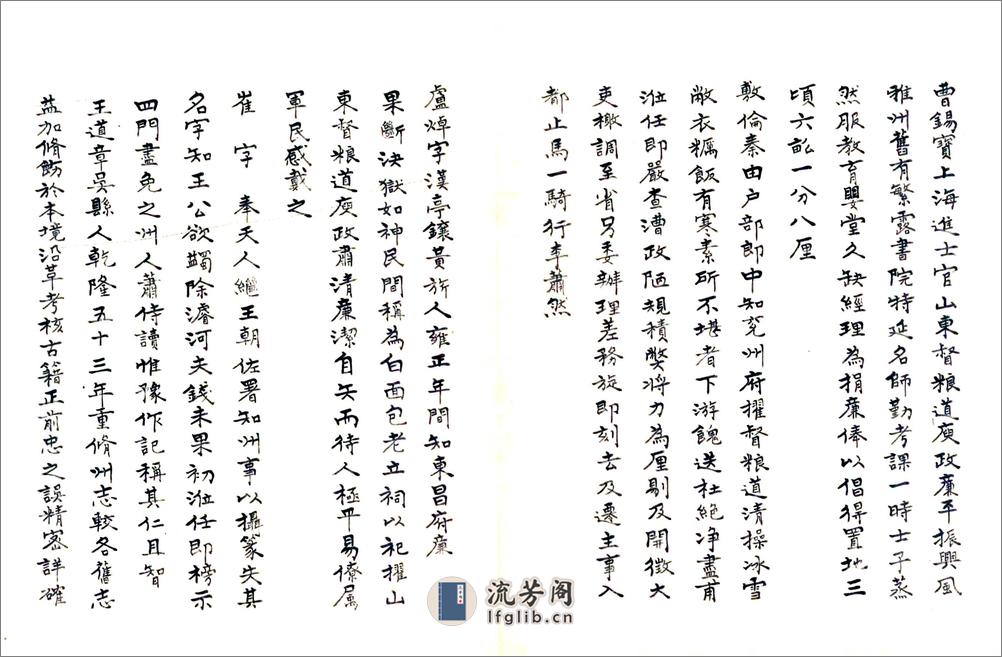 曹錫寶上海進士官山東督粮道庾政廉平振興風
雅州舊有繁露書院特延名師勤考課一時士子蒸
然服教育嬰堂久缺經理為捐廉俸以倡得置地三
頃六畝一分八厘
敷倫泰由户部郎中知兗州府擢督粮道清操冰雪
敝衣糲飯有寒素所不堪者下游餽送杜絕净盡甫
涖任即嚴查漕政陋規積獘將力為厘剔及開徵大
吏檄調至省另委辦理差務旋即刻去及遷主事入
都止馬一騎行李蕭然
盧焯字漢亭鑲黃旂人雍正年間知東昌府廉
果斷決獄如神民間稱為白面包老立祠以祀擢山
東督粮道庾政肅清廉潔自矢而待人極平易僚属
軍民感戴之
崔 字 奉天人繼王朝佐署知州事以攝篆失其
名字知王公欲蠲除濬河夫錢未果初涖任即榜示
四門盡免之州人蕭侍讀惟豫作記稱其仁且智
王道章吳縣人乾隆五十三年重脩州志較各舊志
益加脩飭於本境沿革考核古籍正前忠之誤精密詳確
流芳阁
lfglib.cn